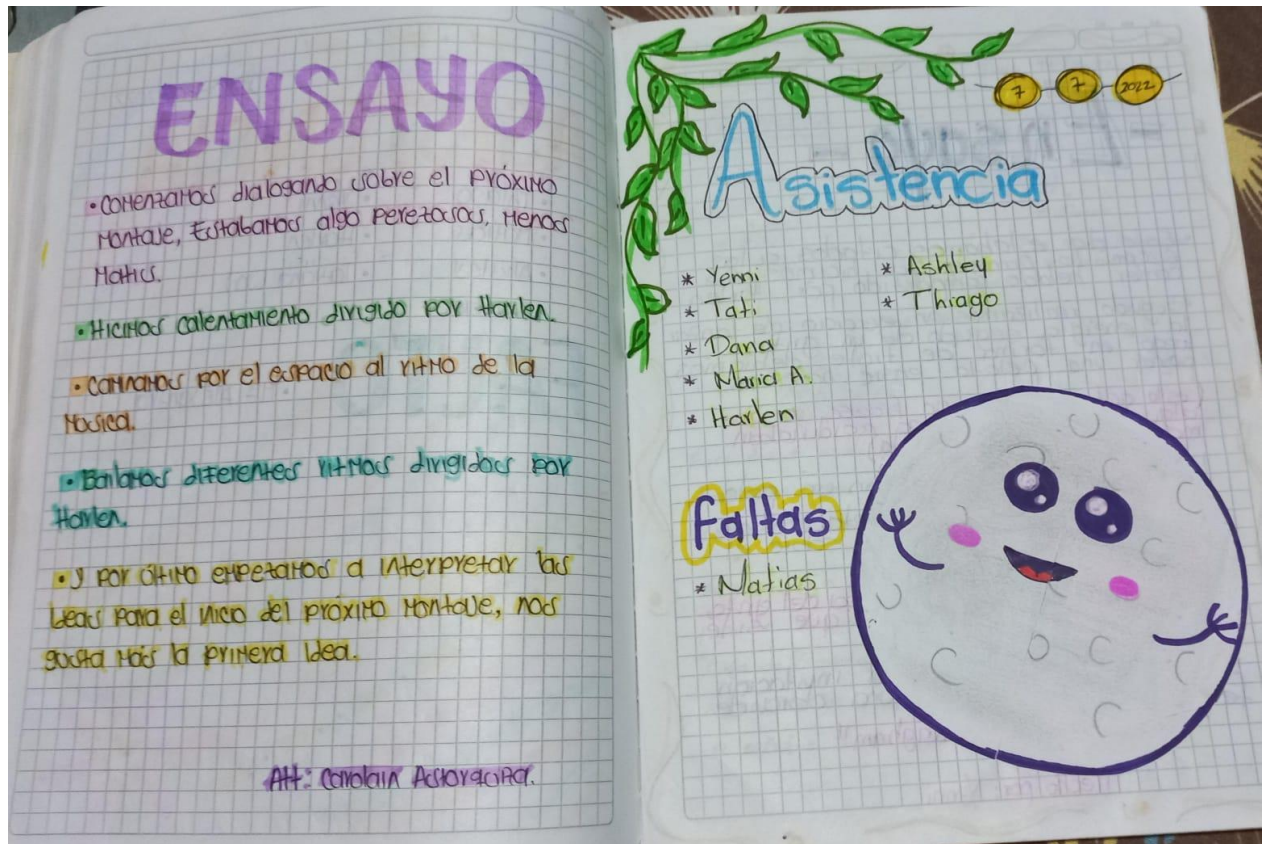 ENSAYO
• Comenzamos dialogando sobre el próximo
montaje, Estabamos algo perezosos, menos
• Hicimos calentamiento dirigido por Harlen.
• Caminamos por el espacio al ritmo de la
• Bailamos diferentes ritmos dirigidos por
Harlen.
• y por último empezamos a interpretar las
ideas para el inicio del próximo montaje, nos
gusta más la primera idea.
Att: Carolain
7 7 2022
Asistencia
* Yenni
* Tati
* Dana
* Maria A.
* Harlen
* Ashley
* Thiago
Faltas
* Matias